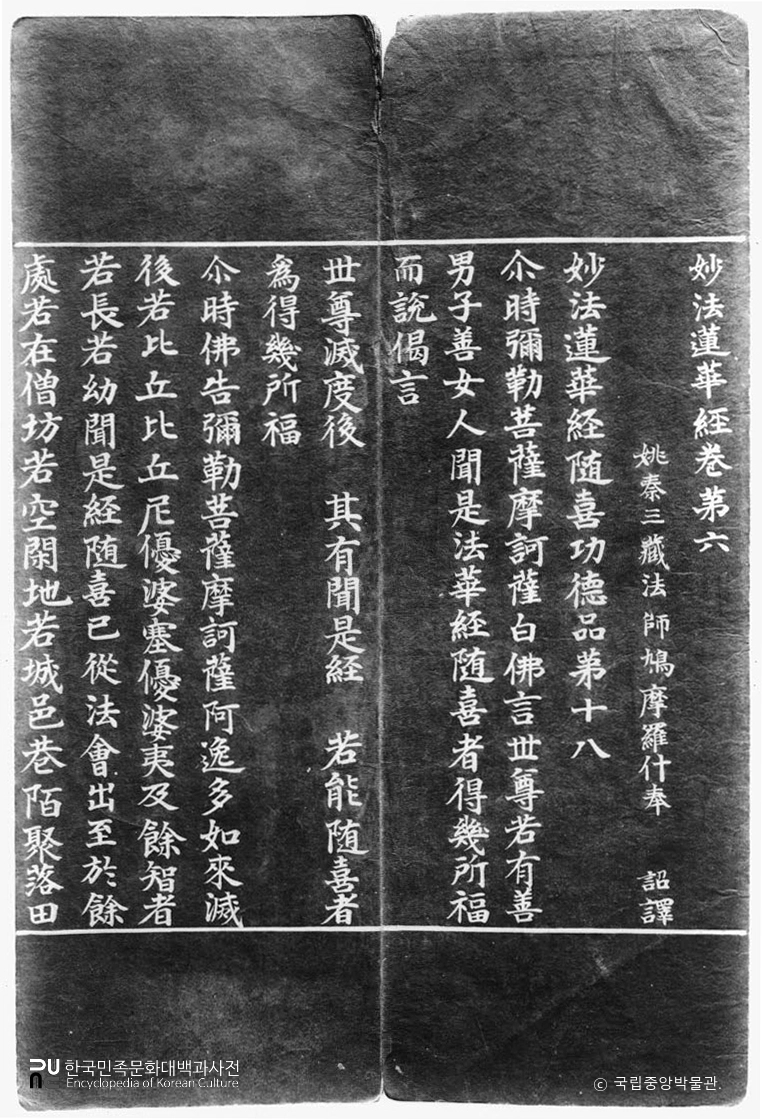 妙法蓮華経卷苐六
姚秦三藏法師鳩摩羅什奉 詔譯
妙法蓮華経随喜功德品苐十八
尒時彌勒菩薩摩訶薩白佛言世尊若有善
男子善女人聞是法華経随喜者得幾所福
而說偈言
世尊滅度後 其有聞是経 若能随喜者
為得幾所福
尒時佛告彌勒菩薩摩訶薩阿逸多如來滅
後若比丘比丘尼優婆塞優婆夷及餘智者
若長若幼聞是経随喜已從法會出至於餘
處若在僧坊若空閑地若城邑巷陌聚落田
한국민족문화대백과사전
Encyclopedia of Korean Culture
© 국립중앙박물관.